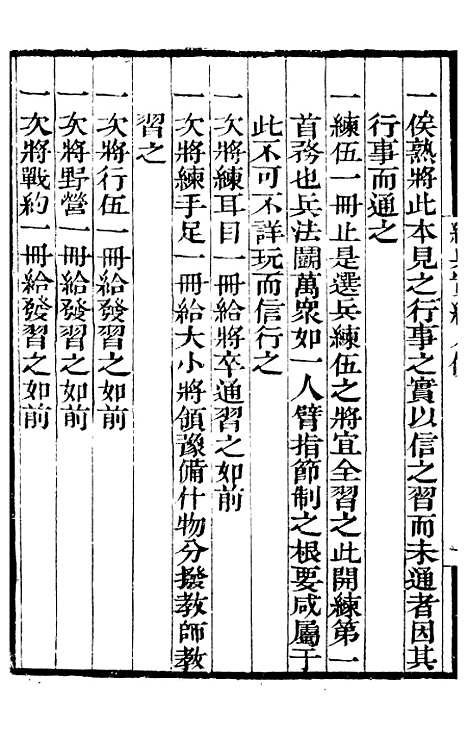 一俟熟將此本見之行事之實以信之習而未通者因其
行事而通之
一練伍一冊止是選兵練伍之將宜全習之此開練第一
首務也兵法鬬萬衆如一人臂指節制之根要咸屬于
此不可不詳玩而信行之
一次將練耳目一冊給將卒通習之如前
一次將練手足一冊給大小將領豫備什物分撥教師教
習之
一次將行伍一冊給發習之如前
一次將野營一冊給發習之如前
一次將戰約一冊給發習之如前